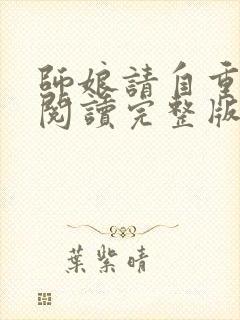 師娘請自重
閱讀完整版
葉紫晴